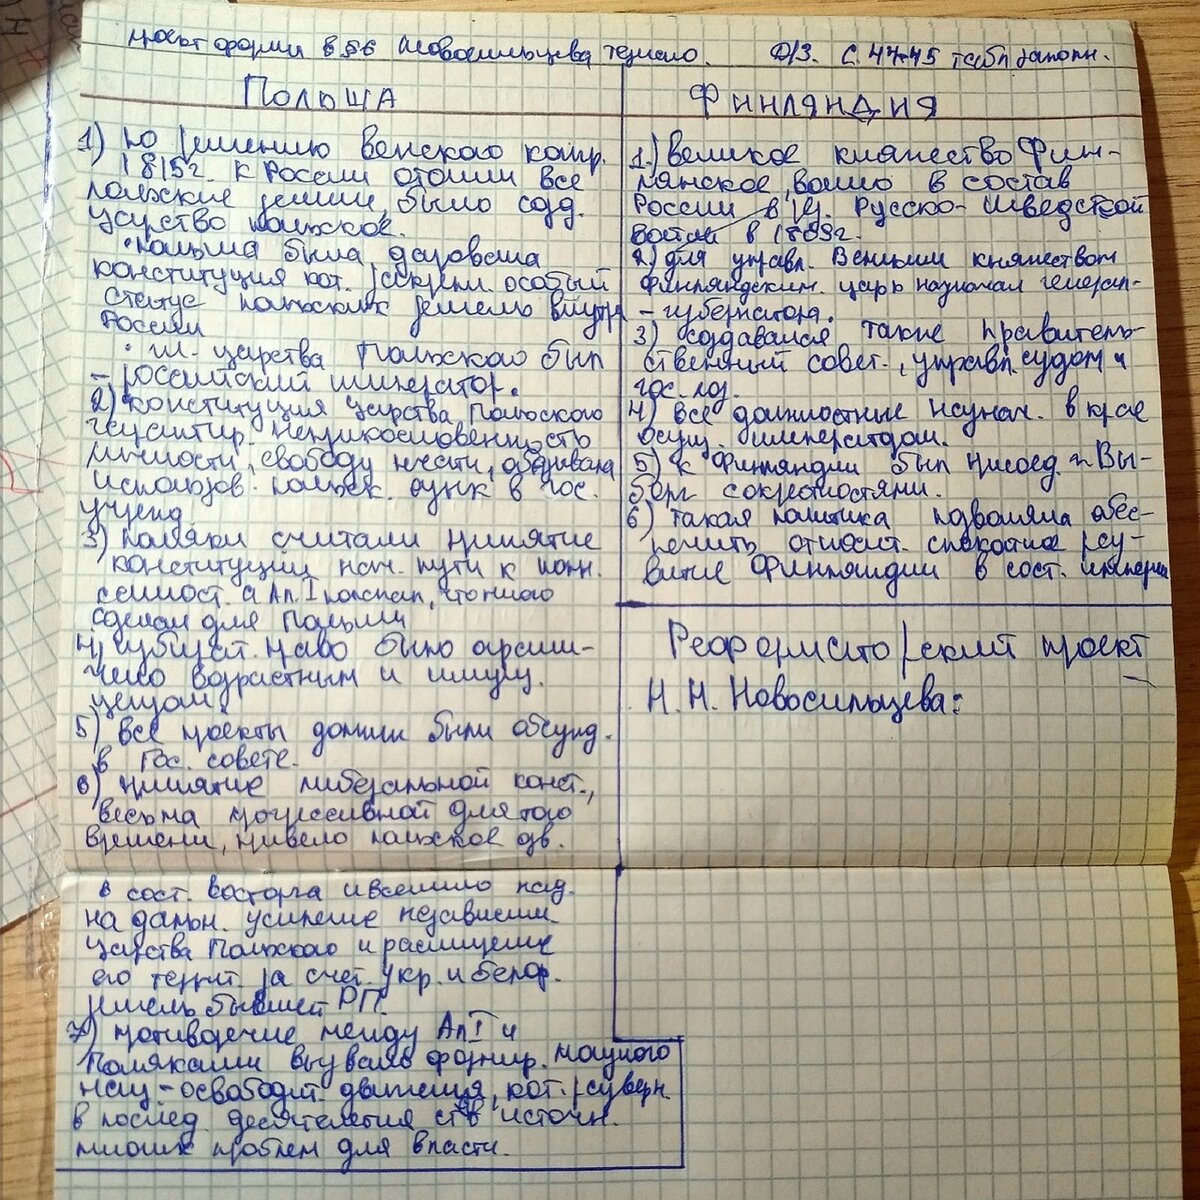 проект форми в §6 Новосильцева тезисно. Д/З. С. 44-45 табл заполн.
ПОЛЬША
1) по решению Венского контр.
1815г. к России отошли все
польские земли, было созд.
царство польское.
• Польша была дарована
конституция кот. закрепл. особый
статус польских земель внутр
России
• гл. царства Польского был
– российский император.
2) конституция царства Польского
гарантир. неприкосновенность
личности, свободу печати, обязывала
использов. польск. язык в гос.
учрежд.
3) поляки считали принятие
конституции нач. пути к полн.
самост. а Ал. I полагал, что много
сделал для Польши
4) избират. право было ограни-
чено возрастным и имущ.
цензом.
5) все проекты должны были обсужд.
в Гос. совете.
6) принятие либеральной конст.,
весьма прогрессивной для того
времени, привело польское дв.
в сост. восторга и вселило над.
на дальн. усиление независим.
царства Польского и расширение
его террит. за счет укр. и белор.
земель бывшей РП.
7) противоречие между Ал I и
поляками вызвало формир. мощного
нац-освободит. движения, кот. разверн.
в послед. десятилетия ств источн.
многих проблем для власти.
ФИНЛЯНДИЯ
1.) Великое княжество Фин-
лянское вошло в состав
России в рез. Русско-шведской
войны в 1809г.
2) для управл. Великим княжеством
Финляндским царь назначал генерал-
– губернатора.
3) создавался также правитель-
ственный совет., управл. судом и
гос. хоз.
4) все должностные назнач. в крае
осущ. императором.
5) к Финляндии был присоед. г. Вы-
борг с окрестностями.
6) такая политика позволяла обес-
печить относит. спокойное раз-
витие Финляндии в сост. империи
Реформаторский проект
Н.Н. Новосильцева: